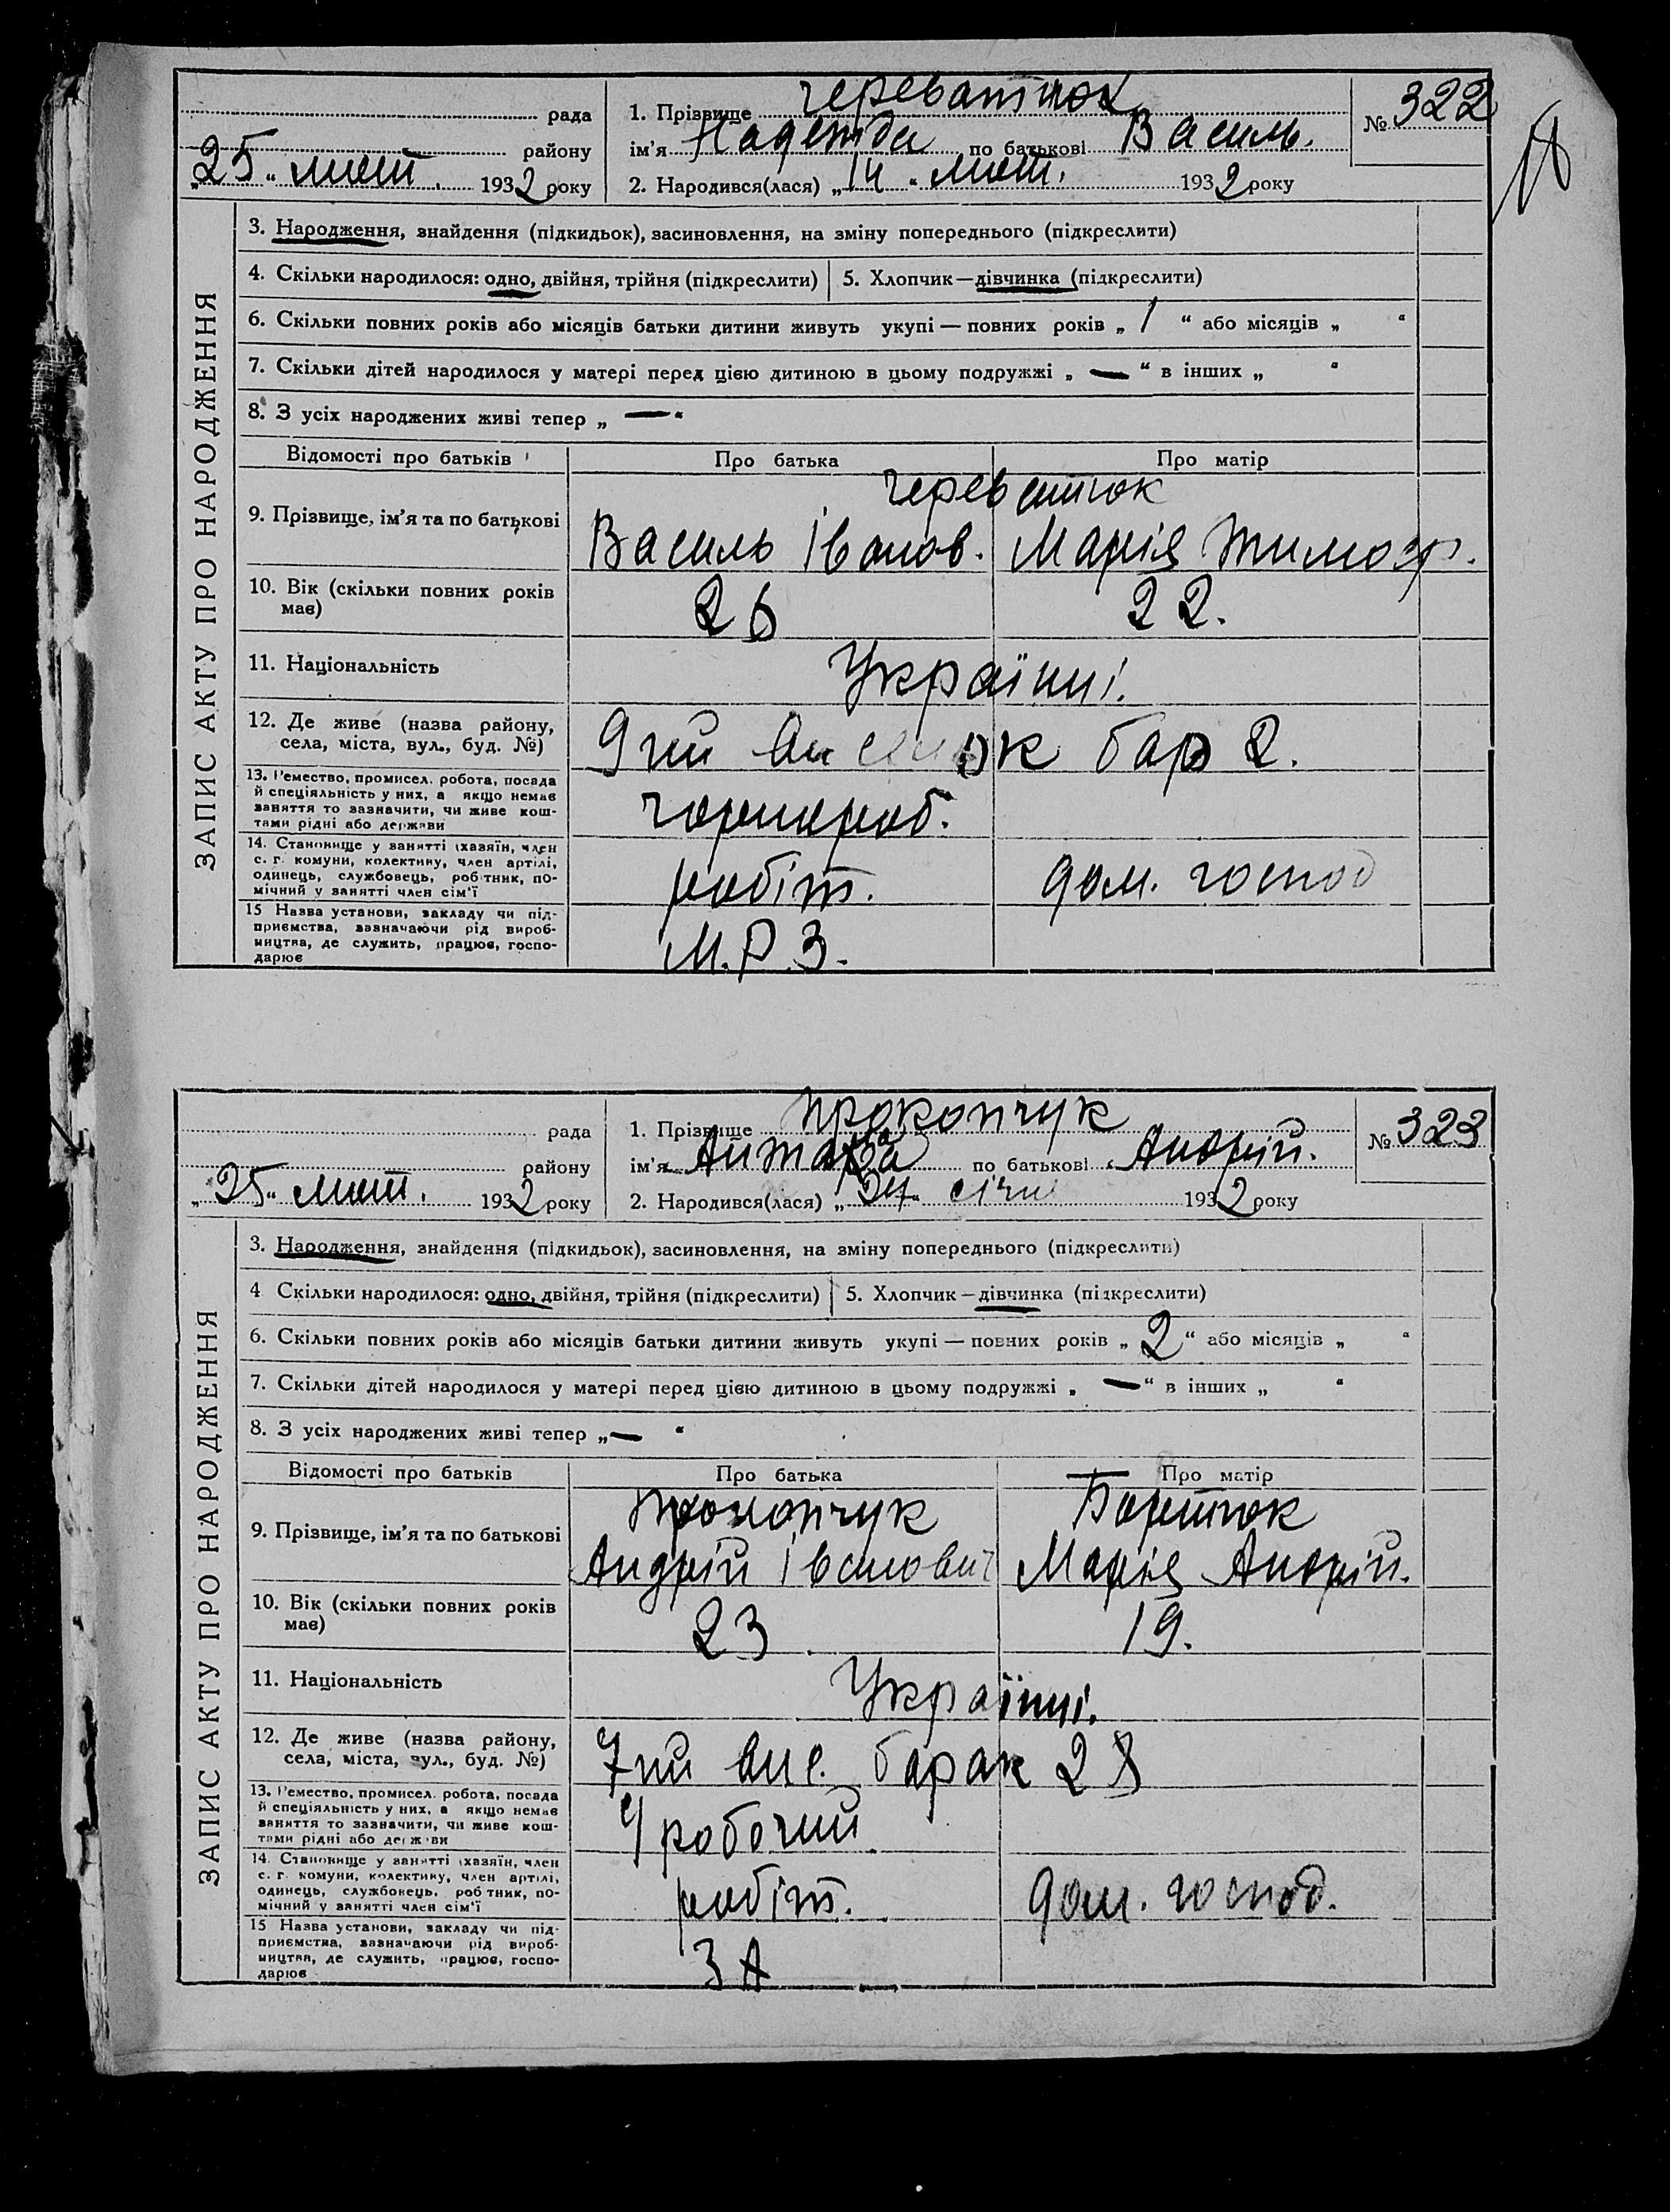 рада
району
„25" лют. 1932 року
1. Прізвище Череватюк
ім'я Надежда по батькові Василь.
2. Народився(лася) „14" лют. 1932 року
№ 322
ЗАПИС АКТУ ПРО НАРОДЖЕННЯ
3. Народження, знайдення (підкидьок), засиновлення, на зміну попереднього (підкреслити)
4. Скільки народилося: одно, двійня, трійня (підкреслити) 5. Хлопчик—дівчинка (підкреслити)
6. Скільки повних років або місяців батьки дитини живуть укупі — повних років „ 1 " або місяців „ "
7. Скільки дітей народилося у матері перед цією дитиною в цьому подружжі „ — " в інших „ "
8. З усіх народжених живі тепер „ — "
Відомості про батьків Про батька Про матір
Череватюк
9. Прізвище, ім'я та по батькові Василь Іванов. Марія Тимоф.
10. Вік (скільки повних років має) 26 22.
11. Національність Українці.
12. Де живе (назва району,
села, міста, вул., буд. №) 9тий виселок бар 2.
13. Ремество, промисел. робота, посада
й спеціяльність у них, а якщо немає
заняття то зазначити, чи живе кош-
тами рідні або держави
чорнороб.
14. Становище у занятті (хазяїн, член
с. г. комуни, колективу, член артілі,
одинець, службовець, робітник, по-
мічний у занятті член сім'ї
робіт. дом. господ
15 Назва установи, закладу чи під-
приємства, зазначаючи рід вироб-
ництва, де служить, працює, госпо-
дарює
М.Р.З.
рада
району
„25" лют. 1932 року
1. Прізвище Прокопчук
ім'я по батькові Андрій.
2. Народився(лася) „ " січн 1932 року
№ 323
ЗАПИС АКТУ ПРО НАРОДЖЕННЯ
3. Народження, знайдення (підкидьок), засиновлення, на зміну попереднього (підкреслити)
4 Скільки народилося: одно, двійня, трійня (підкреслити) 5. Хлопчик—дівчинка (підкреслити)
6. Скільки повних років або місяців батьки дитини живуть укупі — повних років „ 2 " або місяців „ "
7. Скільки дітей народилося у матері перед цією дитиною в цьому подружжі „ — " в інших „ "
8. З усіх народжених живі тепер „ — "
Відомості про батьків Про батька Про матір
Прокопчук
9. Прізвище, ім'я та по батькові Андрій Іванович Марія Андрій.
10. Вік (скільки повних років має) 23 19.
11. Національність Українці.
12. Де живе (назва району,
села, міста, вул., буд. №) 7ий вис. барак 28
13. Ремество, промисел. робота, посада
й спеціяльність у них, а якщо немає
заняття то зазначити, чи живе кош-
тами рідні або держави
Ч робочий
14. Становище у занятті (хазяїн, член
с. г. комуни, колективу, член артілі,
одинець, службовець, робітник, по-
мічний у занятті член сім'ї
робіт. дом. господ.
15 Назва установи, закладу чи під-
приємства, зазначаючи рід вироб-
ництва, де служить, працює, госпо-
дарює
З А